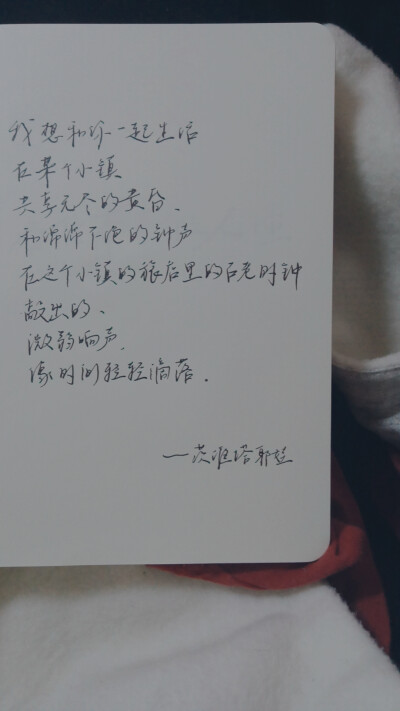 我想和你一起生活
在某个小镇
共享无尽的黄昏、
和绵绵不绝的钟声
在这个小镇的旅店里的古老时钟
敲出的、
微弱响声、
像时间轻轻滴落。
——茨维塔耶娃